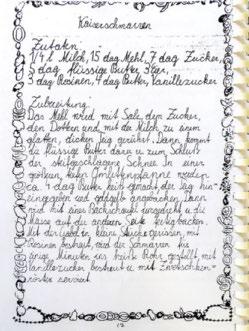 Kaiserschmarren
Zutaten
1/4 l Milch, 15 dag Mehl, 7 dag Zucker,
3 dag flüssige Butter, 3 Eier,
3 dag Rosinen, 4 dag Butter, Vanillezucker
Zubereitung:
Das Mehl wird mit Salz, dem Zucker,
den Dottern und mit der Milch zu einem
glatten, dicken Teig gerührt. Dann kommt
die flüssige Butter dazu u. zum Schluß
der steifgeschlagene Schnee. In einer
großen, Omelettenpfanne werden
ca. 4 dag Butter heiß gemacht der Teig hin-
eingegeben und goldgelb angebacken. Dann
wird mit einer Backschaufel umgedreht u. die
Masse auf der anderen Seite fertigbacken.
Mit der Gabel in kleine Stücke gerissen, mit
Rosinen bestreut, wird der Schmarren für
einige Minuten ins heiße Rohr gestellt, mit
Vanillezucker bestreut u. mit Zwetschken-
röster serviert.
17